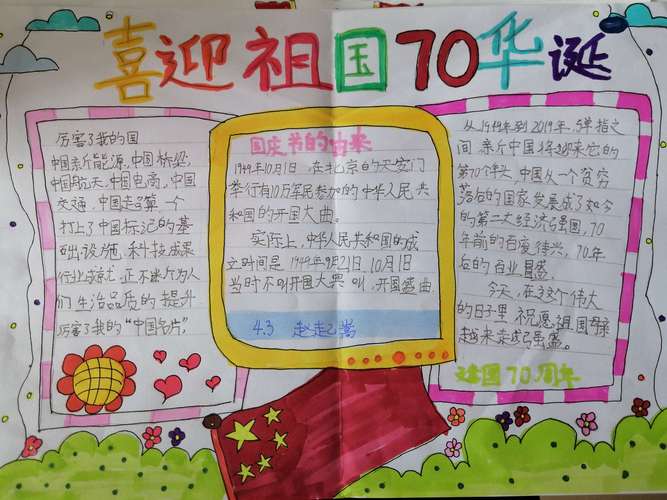 喜迎祖国70华诞
厉害了我的国
中国新能源.中国桥梁.
中国航天,中国电商,中国
交通,中国走了第一个
打上了中国标记的基
础设施,科技成果
行业成就,正不断为人
们生活品质的提升
厉害了我的“中国名片”
国庆节的由来
1949年10月1日,在北京的天安门
举行有10万军民参加的中华人民共
和国的开国大曲。
实际上,中华人民共和国的成
立时间是1949年9月21日.10月1日
当时不叫开国大典叫,开国盛曲.
4.3
从1949年到2019年,弹指之
间,新中国将迎来它的
第70个华诞,中国从一个贫穷
落后的国家发展成了如今
的第二大经济强国,70
年前的百废待兴,70年
后的百业昌盛.
今天,在这个伟大
的日子里祝愿祖国母亲
越来越强盛。
建国70周年